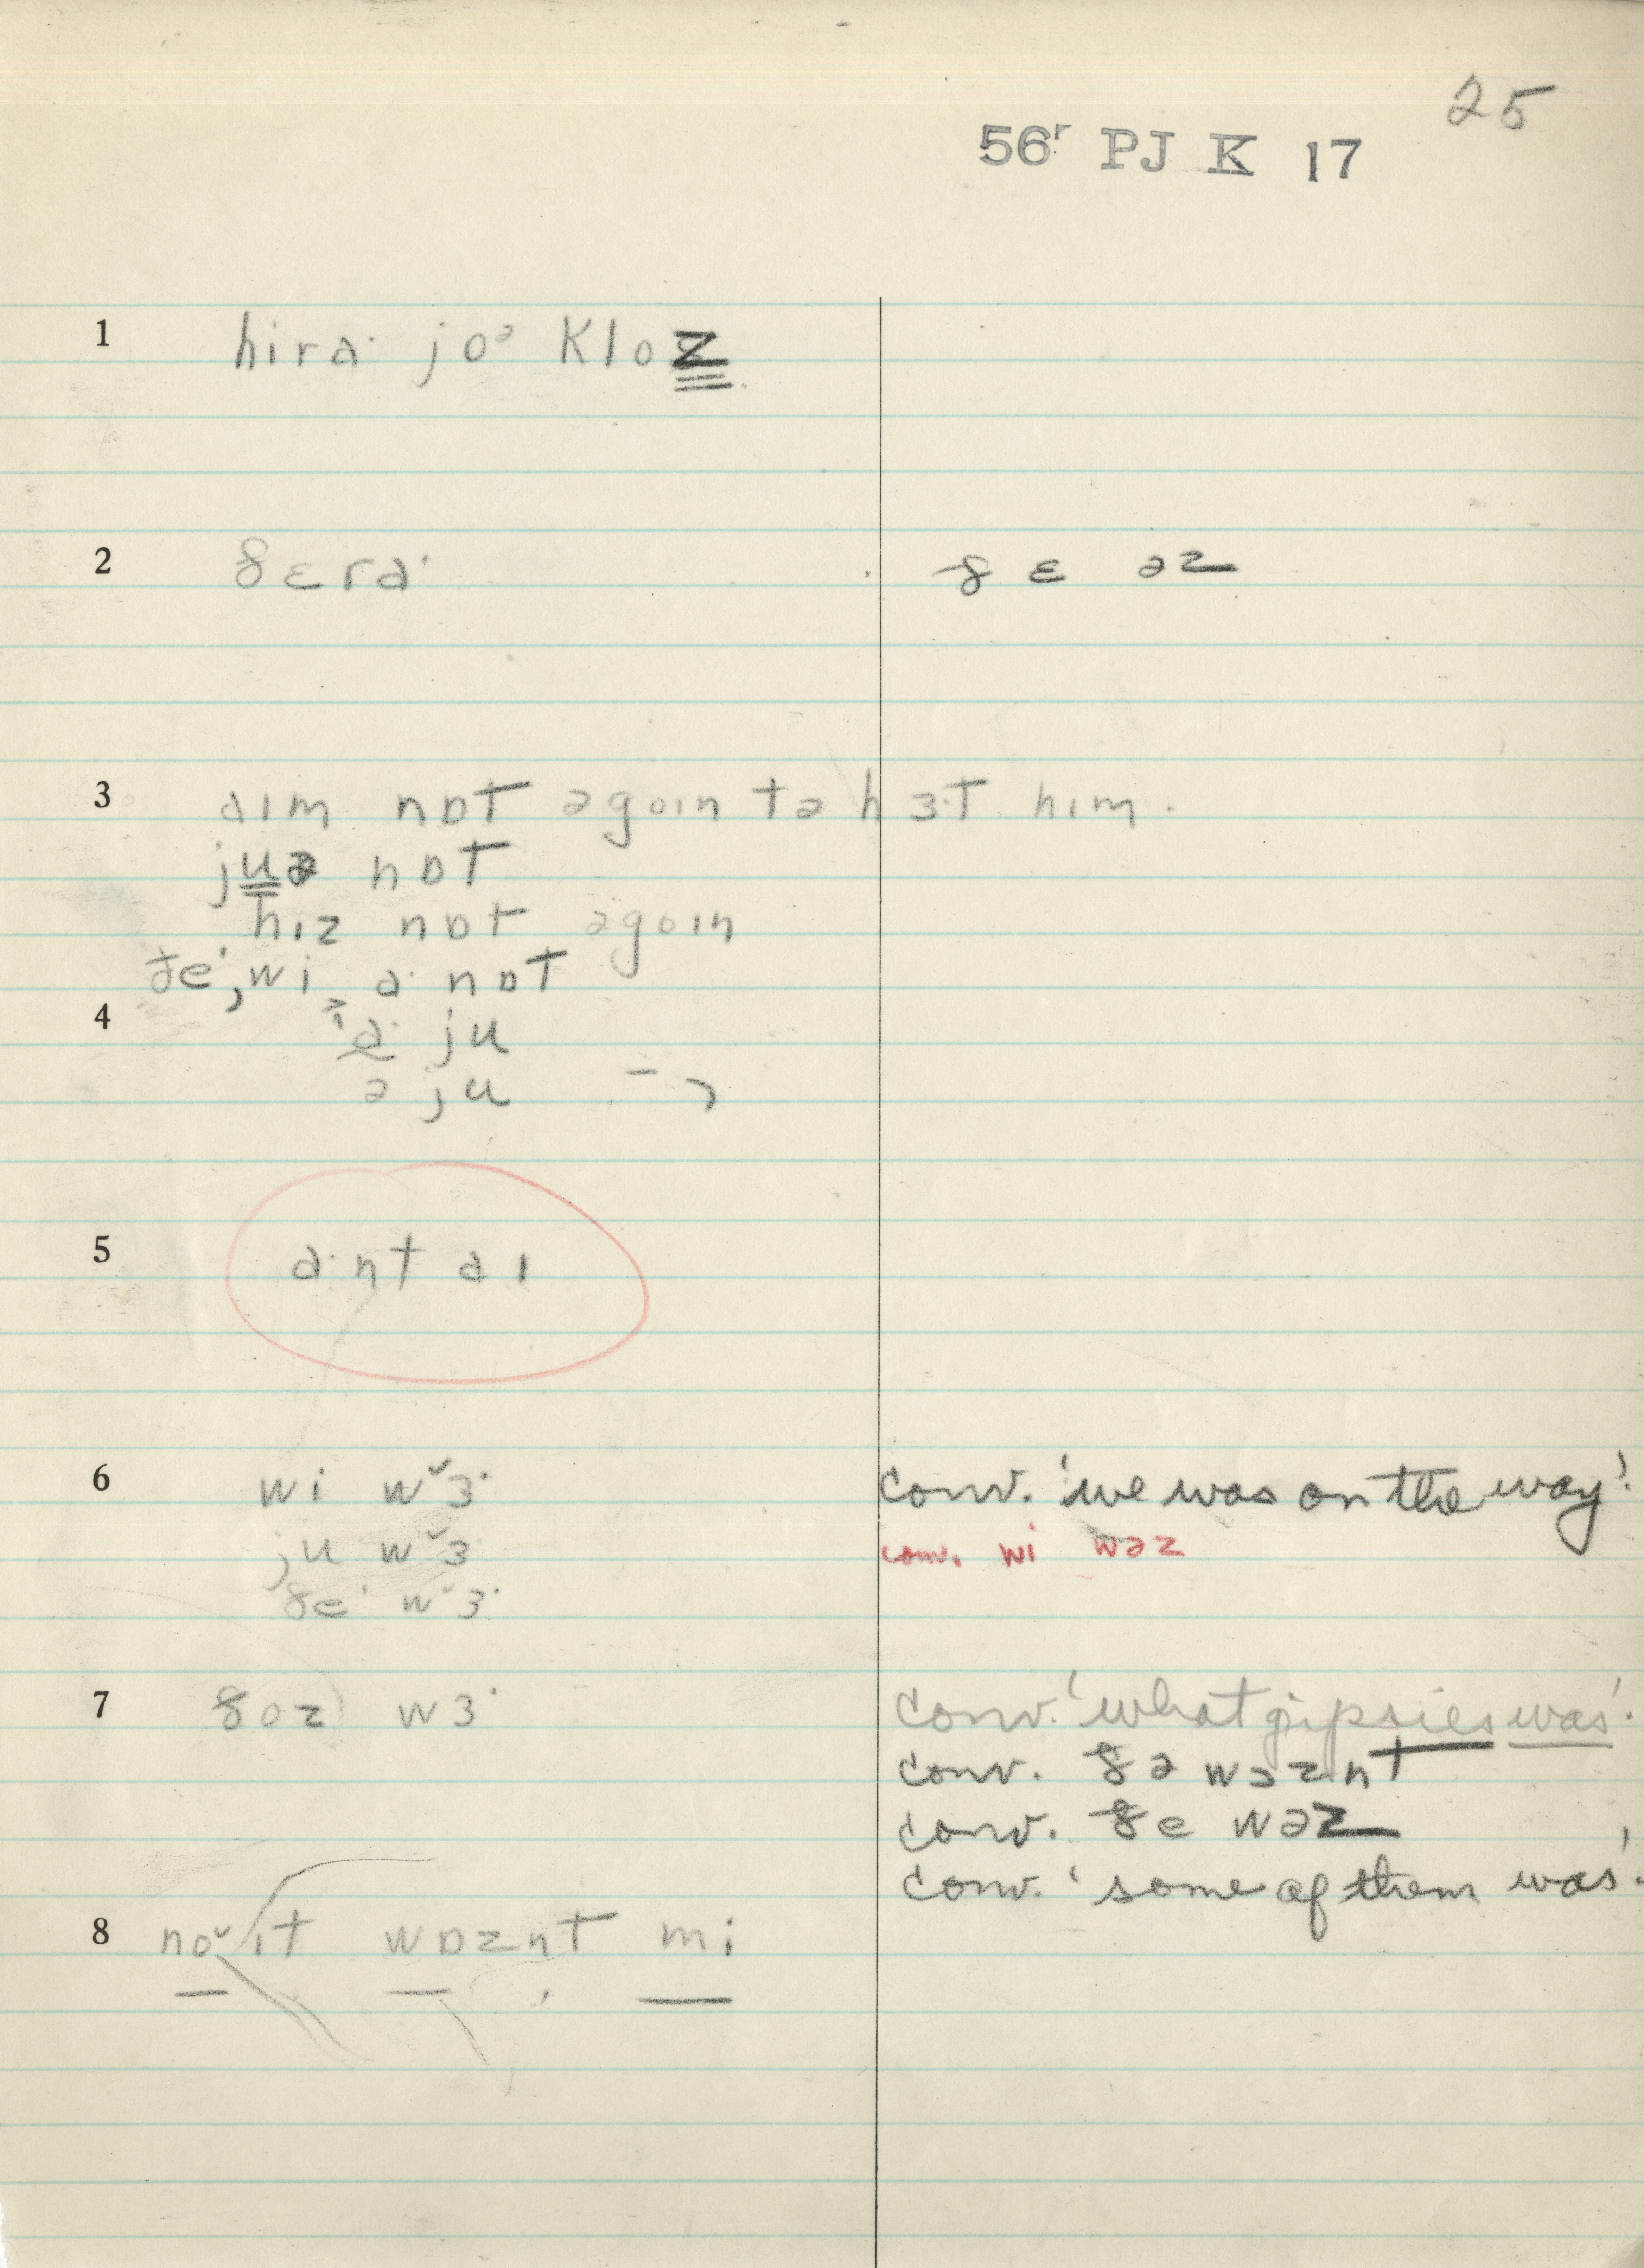 25
56r PJ K 17
1 hira· joᵊ kloz
2 ðɛra· ðɛ əz
3 aɪm nɒt əgoɪn tə hɜ·t him.
juə nɒt
hɪz nɒt əgoɪn
ðe·, wi, a· nɒt
4 a· ju
ə ju
5 a·nt aɪ
6 wi wˇɜ· conv. 'we was on the way'
ju wˇɜ conv. wi wəz
ðe· wˇɜ·
7 ðoz wɜ· conv. 'what gipsies was'.
conv. ðə wəznt
conv. ðe wəz
conv. 'some of them was'.
8 noˇ ɪt wɒznt mi